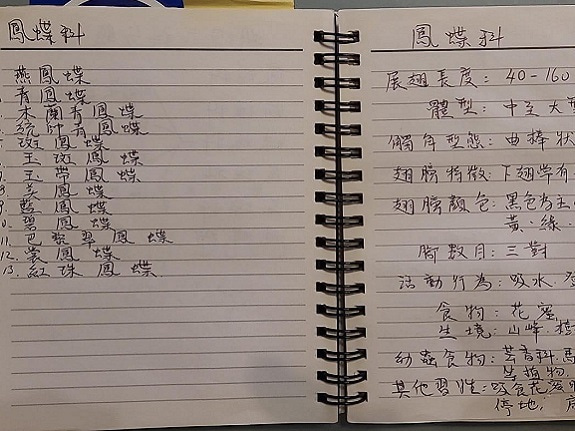 鳳蝶科
燕鳳蝶
青鳳蝶
木蘭青鳳蝶
統帥青鳳蝶
斑鳳蝶
玉斑鳳蝶
玉帶鳳蝶
美鳳蝶
藍鳳蝶
碧鳳蝶
11. 巴黎翠鳳蝶
12. 裳鳳蝶
13. 紅珠鳳蝶
鳳蝶科
展翅長度: 40-160
體型: 中至大型
觸角型態: 曲棒狀
翅膀特徵: 下翅常有
翅膀顏色: 黑色為主
黃、綠、
腳數目: 三對
活動行為: 吸水、
食物: 花蜜
生境: 山峰、
幼蟲食物: 芸香科、馬
等植物
其他習性: 吸食花蜜
停地,